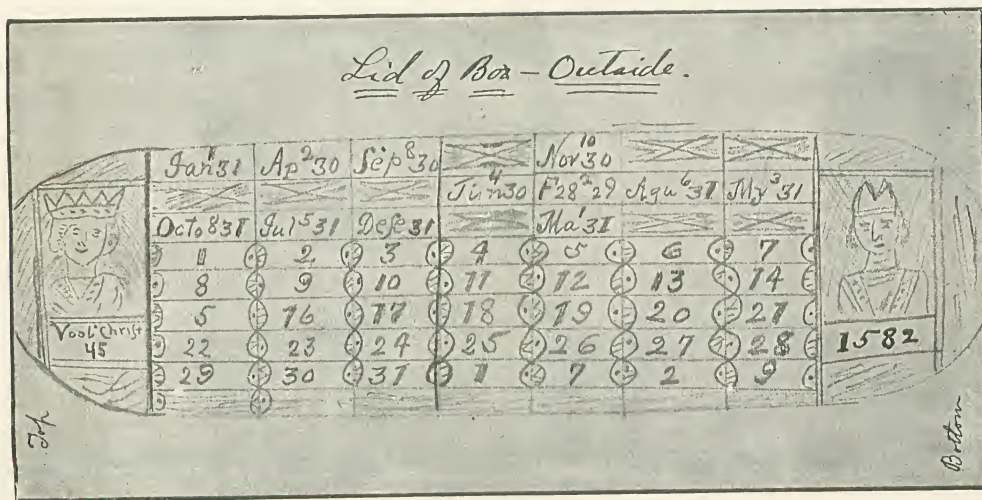 Lid of Box – Outside.
Jan¹31 Ap²30 Sep⁸30 Nov¹⁰30
Jun⁴30 F28²29 Agu⁶31 My³31
Octo831 Jul⁵31 Dese31 Ma¹31
1 2 3 4 5 6 7
8 9 10 11 12 13 14
5 16 17 18 19 20 21
22 23 24 25 26 27 28
29 30 31 1 7 2 9
Voor Christ
45
1582
Top
Bottom